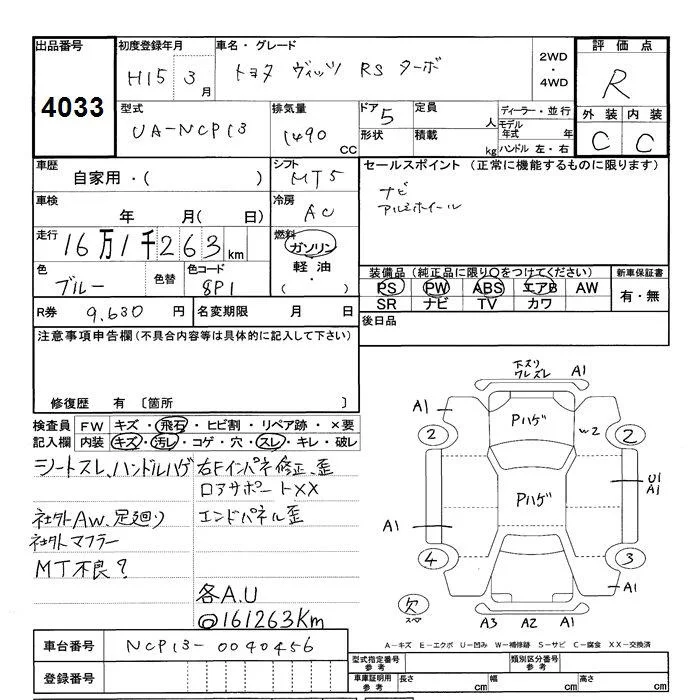 出品番号 初度登録年月 車名・グレード 2WD・4WD 評価点
4033 H15 3月 トヨタ ヴィッツ RS ターボ R
型式 排気量 ドア 定員 ディーラー・並行 外装 内装
UA-NCP13 1490 CC 5 人 モデル年式 年 C C
形状 積載 kg ハンドル 左・右
車歴 シフト セールスポイント(正常に機能するものに限ります)
自家用・( ) MT5 ナビ
車検 冷房 アルミホイール
年 月( 日) AC
走行 燃料
16万1千263km ガソリン
色 色替 色コード 軽油 装備品(純正品に限り○をつけてください) 新車保証書
ブルー 8P1 ・( ) PS PW ABS エアB AW 有・無
SR ナビ TV カワ
R券 9,630円 名変期限 月 日 後日品
注意事項申告欄(不具合内容等は具体的に記入して下さい)
修復歴 有〔箇所 〕
検査員 FW キズ・飛石・ヒビ割・リペア跡・×要
記入欄 内装 キズ・汚レ・コゲ・穴・スレ・キレ・破レ
シートスレ、ハンドルハゲ 右Fインパネ修正、歪
ロアサポートXX
社外AW、足廻り エンドパネル歪
社外マフラー
MT不良?
各A.U
@161263Km
下ズリ
ワレズレ A1
A1 Pハゲ W2
2 2
Pハゲ U1
A1
A1
4 3
A1
欠
スペア A3 A2 A1
車台番号 NCP13-0040456
A-キズ E-エクボ U-凹み W-補修跡 S-サビ C-腐食 XX-交換済
登録番号
型式指定番号 参考 類別区分番号 参考
車庫証明用 参考 長さ cm 幅 cm 高さ cm